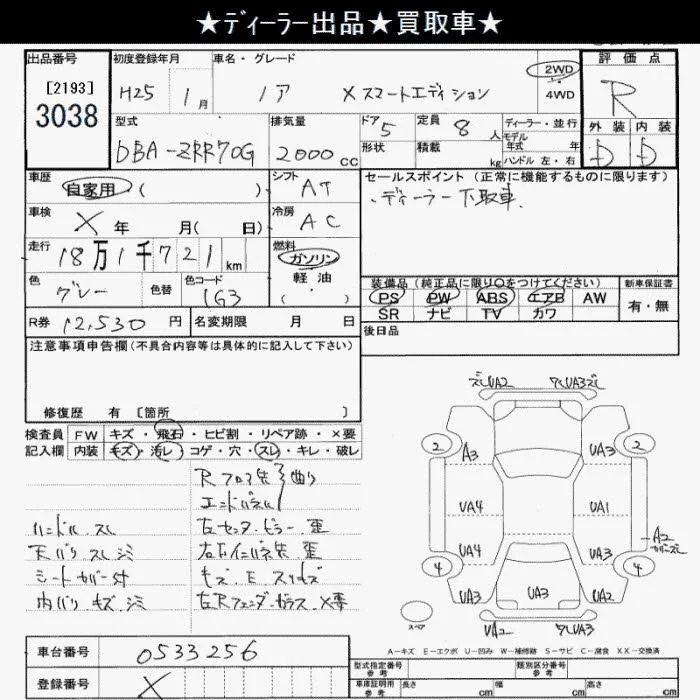 ★ディーラー出品★買取車★
出品番号
[2193]
3038
初度登録年月
H25 1月
車名・グレード
ノア X スマートエディション
2WD
4WD
評価点
R
外装 内装
D D
型式
DBA-ZRR70G
排気量
2000cc
ドア 5
形状
定員 8人
積載 kg
ディーラー・並行
モデル年式 年
ハンドル 左・右
車歴
自家用 ( )
シフト AT
車検 X 年 月( 日)
冷房 AC
走行 18万1千721km
燃料
ガソリン
軽油
( ・ )
色 グレー
色替
色コード 1G3
R券 12,530円
名変期限 月 日
セールスポイント(正常に機能するものに限ります)
・ディーラー下取車.
装備品(純正品に限り○をつけてください)
PS PW ABS エアB AW
SR ナビ TV カワ
新車保証書
有・無
後日品
注意事項申告欄(不具合内容等は具体的に記入して下さい)
修復歴 有 [箇所 ]
検査員記入欄
FW キズ・飛石・ヒビ割・リペア跡・×要
内装 キズ・汚レ・コゲ・穴・スレ・キレ・破レ
Rフロア先多曲り
エンドパネル
ハンドル スレ
左センターピラー歪
天バリ スレ シミ
右右インパネ先 歪
シートカバー付
キズ.E スリキズ
内バリ キズ.シミ
左Rフェンダーガラス X要
ズレUA2 ワレUA3ズレ
2 2
A3 UA3
UA4 UA1
A2
カバーズレ
UA4 UA3
4 4
UA3 UA3 UA2
UA2 ワレUA3
スペア
A-キズ E-エクボ U-凹み W-補修跡 S-サビ C-腐食 XX-交換済
車台番号 0533256
登録番号 X
型式指定番号 参考
類別区分番号 参考
車庫証明用 参考 長さ cm 幅 cm 高さ cm